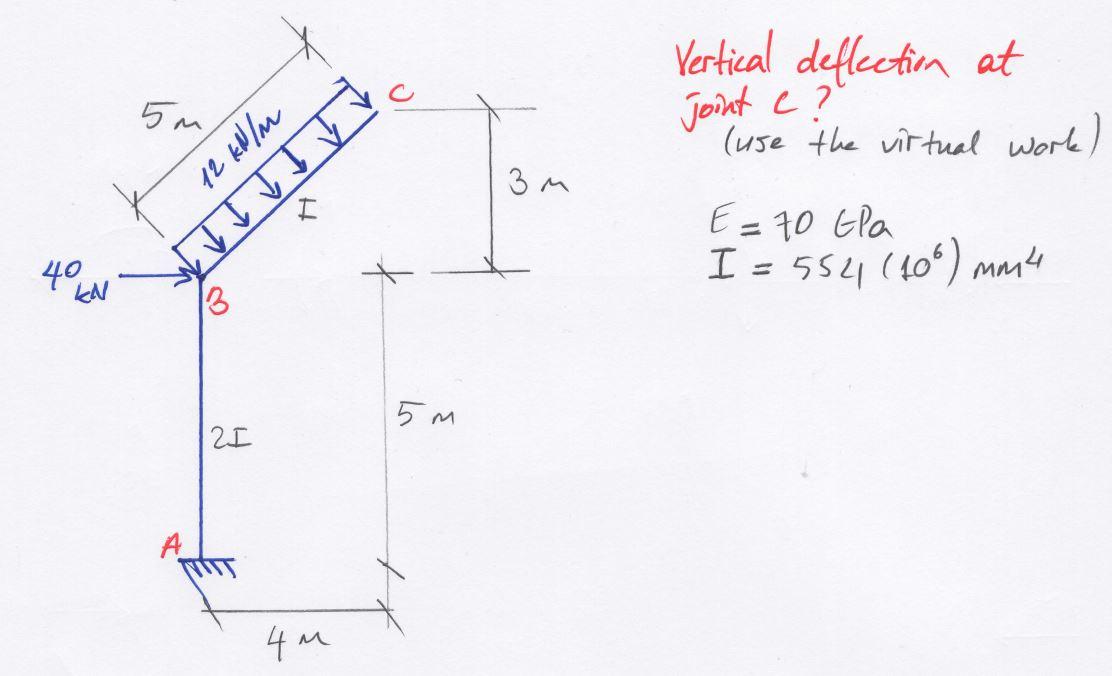 Vertical deflection at
joint C?
(use the virtual work)
E = 70 GPa
I = 554 (10⁶) mm⁴
5 m
12 kN/m
C
I
3 m
40
kN
B
2I
5 m
A
4 m